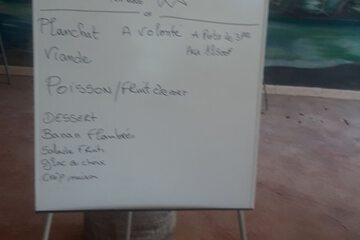 Planchat A volonté A Partir de 3 pers
Viande
POISSON/FRUIT de mer
DESSERT
Banan Flambées
Salade Fruits
glac au choux
Crêp maison